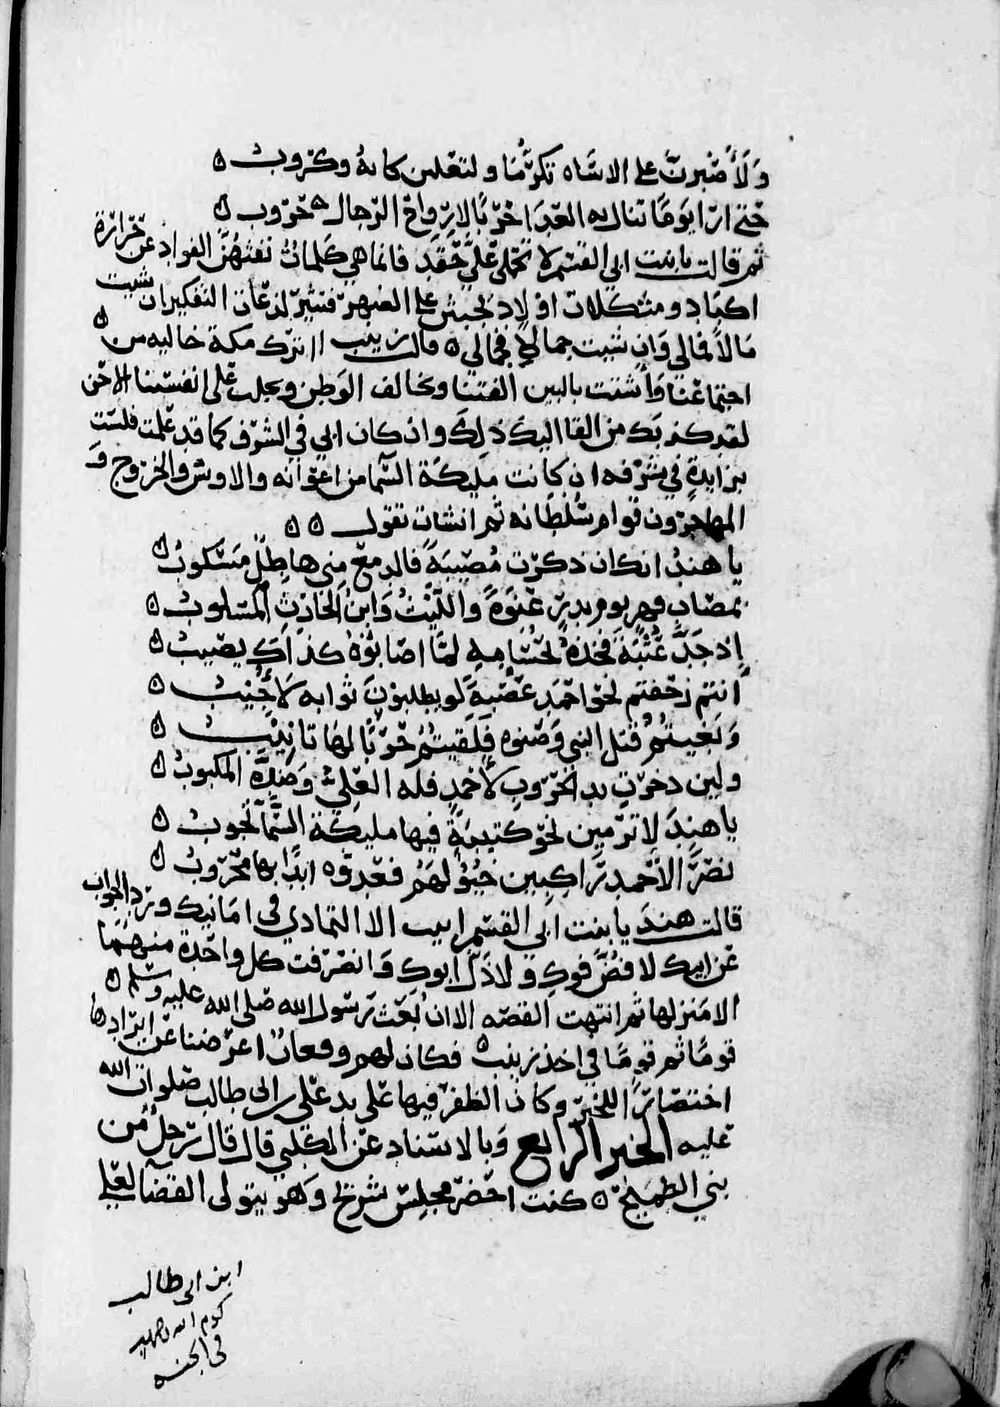 ولأصبرن على الاساه تكرما ولتعلمن كابة وكروب ه
حتى ارا يوما تنال به العدا حربا لارواح الرجال حروب ه
ثم قالت يا بنت ابي القسم لا تحملي علي حقد فانما هي كلمات نفثهن الفواد عن حرارة
اكباد ومشكلات اولاد لجيش على الصهر فتثير لذعات التفكير ان شيت
مالا فمالي وان شيت جمالا فجمالي ه قالت زينب ااترك مكة خاليه من ه
اجتماعنا وأشتت بالبين الفتنا ونخالف الوطن ونجلب على انفسنا الاحن
لقد كذبك من القا اليك ذلك وان كان ابي في الشرف كما قد علمت فلست
بزايدة في شرفه ان كانت مليكة السما من اعوانه والاوس والخزرج و
المهاجرون قوام سلطانه ثم انشات تقول ه ه
يا هند ان كان ذكرت مصيبة فالدمع مني هاطل مسكوب ه
بمصاب فهر يوم بدر عنوة والليث وابن الحارث المسلوب ه
إذ جد عتبة فخذه بحسامه لما اصابوه كذاك يصيب ه
انتم زحفتم نحو احمد عصبة لو يطلبون ثوابه لاجيب ه
وبغيتم قتل النبي وصنوه فلقيتم حربا لها تانيب ه
ولين دحرت بد الحروب لأحمد فله العلى وضده المكبوب ه
يا هند لا ترمين نحو كتيبة فيها مليكة السما تجوب ه
نصرا لاحمد راكبين خيولهم فعدوه ابدا بها محروب ه
قالت هند يا بنت ابي القسم ابيت الا التمادي في امانيك ورد الجواب
عن ابيك لا فض فوك ولا ذل ابوك وانصرفت كل واحدة منهما
الا منزلها ثم انتهت القصه الا ان بعث رسول الله صلى الله عليه وسلم ه
قوما ثم قوما في اخذ زينب ه فكان لهم وقعات اعرضنا عن ايرادها
اختصارا للخبر وكان الظفر فيها على يد علي بن ابي طالب صلوات الله
عليه الخبر الرابع وبالاسناد عن الكلبي قال قال رجل من
بني الطميح ه كنت احضر مجلس شريح وهو يتولى القضا لعلي
ابن ابي طالب
كرم الله وجهه
في الجنه